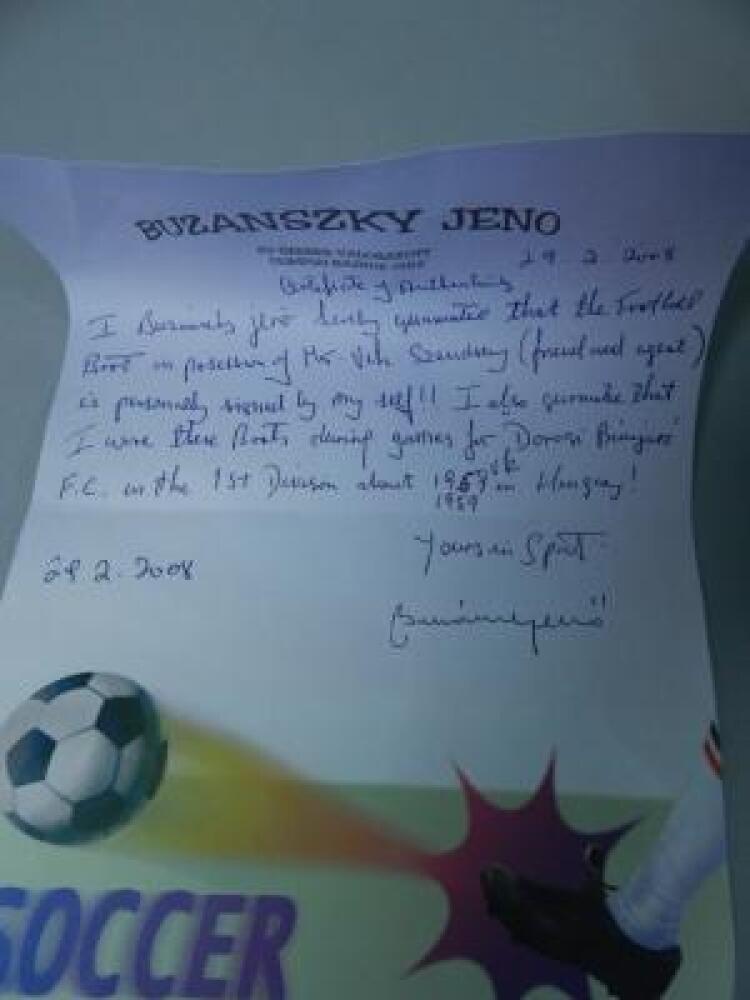 BUZANSZKY JENO
29 2 2008
Certificate of Authenticity
I Buzansky Jenö hereby guarantee that the Football
Boot in possession of Mr (friend and agent)
is personally signed by my self!! I also guarantee that
I wore these Boots during games for Dorogi Bányász
F.C. in the 1st Division about 1959 in Hungary!
1959
Yours in Sport
29 2. 2008
SOCCER